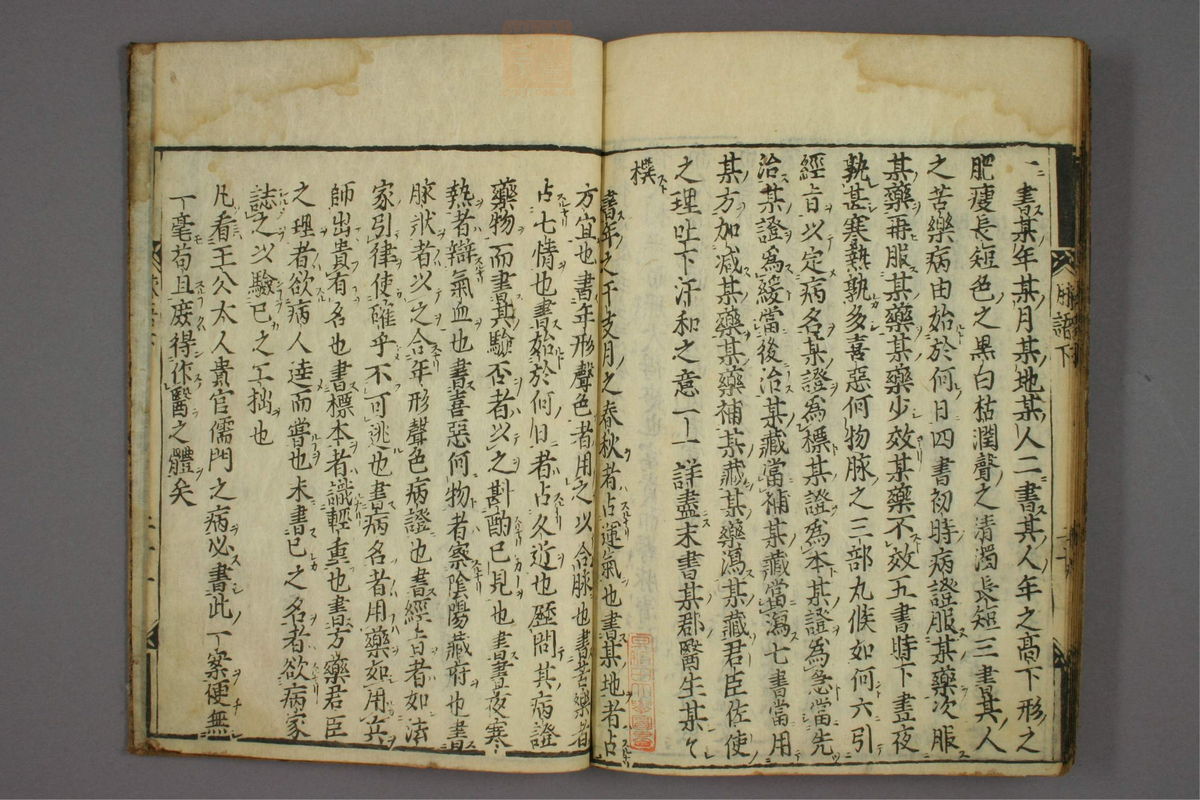 脉語下
一書某年某月某地某人二書其人年之高下形之
肥瘦長短色之黒白枯潤聲之清濁長短三書其人
之苦樂病由始於何日四書初時病證服某藥次服
某藥再服某藥某藥少效某藥不效五書時下晝夜
孰甚寒熱孰多喜惡何物脉之三部九候如何六引
經旨以定病名某證為標某證為本某證為急當先
治某證為緩當後治某藏當補某藏當瀉七書當用
某方加減某藥某藥補某藏某藥瀉某藏君臣佐使
之理吐下汗和之意一一詳盡末書某郡醫生某某
撰
書年之干支月之春秋者占運氣也書某地者占
方宜也書年形聲色者用之以合脉也書苦樂者
占七情也書始於何日者占久近也歷問其病證
藥物而書其驗否者以之斟酌已見也書晝夜寒
熱者辯氣血也書喜惡何物者察陰陽藏府也書
脉狀者以之合年形聲色病證也書經旨者如法
家引律使確乎不可逃也書病名者用藥如用兵
師出貴有名也書標本者識輕重也書方藥君臣
之理者欲病人達而嘗也末書已之名者欲病家
誌之以驗已之工拙也
凡看王公大人貴官儒門之病必書此一案便無
一毫苟且庶得作醫之體矣